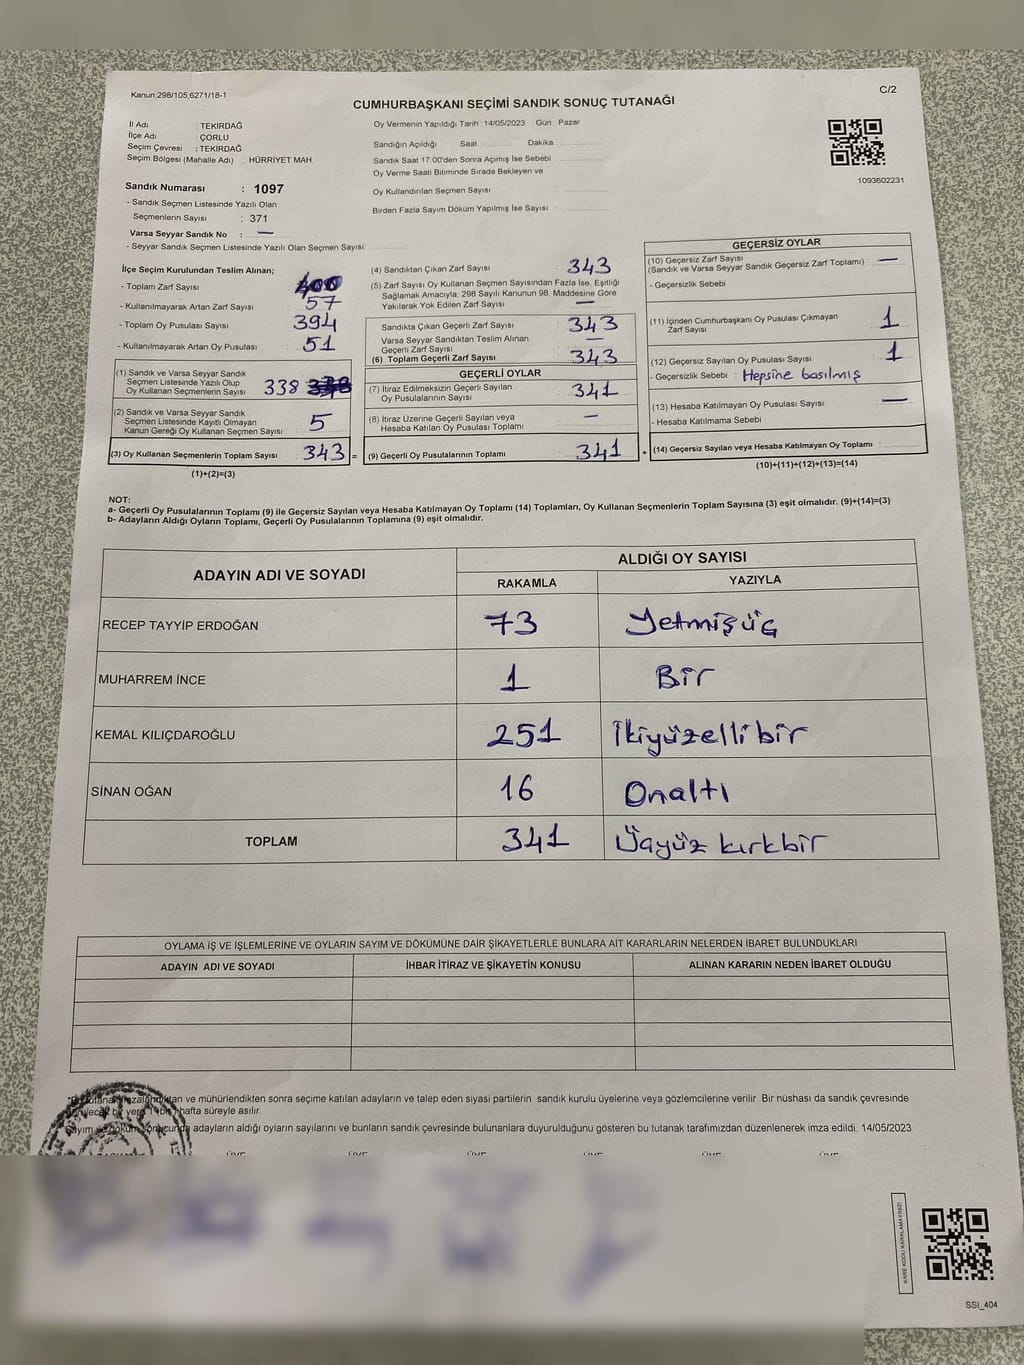 Kanun:298/105,6271/18-1
C/2
CUMHURBAŞKANI SEÇİMİ SANDIK SONUÇ TUTANAĞI
1093602231
İl Adı : TEKİRDAĞ
İlçe Adı : ÇORLU
Seçim Çevresi : TEKİRDAĞ
Seçim Bölgesi (Mahalle Adı) : HÜRRİYET MAH
Sandık Numarası : 1097
- Sandık Seçmen Listesinde Yazılı Olan
Seçmenlerin Sayısı : 371
Varsa Seyyar Sandık No : —
- Seyyar Sandık Seçmen Listesinde Yazılı Olan Seçmen Sayısı:
Oy Vermenin Yapıldığı Tarih :14/05/2023 Gün : Pazar
Sandığın Açıldığı Saat Dakika
Sandık Saat 17:00'den Sonra Açımış İse Sebebi
Oy Verme Saati Bitiminde Sırada Bekleyen ve
Oy Kullandırılan Seçmen Sayısı :
Birden Fazla Sayım Döküm Yapılmış İse Sayısı :
İlçe Seçim Kurulundan Teslim Alınan;
- Toplam Zarf Sayısı : 400
- Kullanılmayarak Artan Zarf Sayısı : 57
- Toplam Oy Pusulası Sayısı : 394
- Kullanılmayarak Artan Oy Pusulası : 51
(1) Sandık ve Varsa Seyyar Sandık
Seçmen Listesinde Yazılı Olup
Oy Kullanan Seçmenlerin Sayısı : 338
(2) Sandık ve Varsa Seyyar Sandık
Seçmen Listesinde Kayıtlı Olmayan
Kanun Gereği Oy Kullanan Seçmen Sayısı : 5
(3) Oy Kullanan Seçmenlerin Toplam Sayısı : 343 =
(1)+(2)=(3)
(4) Sandıktan Çıkan Zarf Sayısı : 343
(5) Zarf Sayısı Oy Kullanan Seçmen Sayısından Fazla İse, Eşitliği
Sağlamak Amacıyla; 298 Sayılı Kanunun 98. Maddesine Göre
Yakılarak Yok Edilen Zarf Sayısı : —
Sandıkta Çıkan Geçerli Zarf Sayısı : 343
Varsa Seyyar Sandıktan Teslim Alınan
Geçerli Zarf Sayısı : —
(6) Toplam Geçerli Zarf Sayısı : 343
GEÇERLİ OYLAR
(7) İtiraz Edilmeksizin Geçerli Sayılan
Oy Pusulalarının Sayısı : 341
(8) İtiraz Üzerine Geçerli Sayılan veya
Hesaba Katılan Oy Pusulası Toplamı : —
(9) Geçerli Oy Pusulalarının Toplamı : 341 +
GEÇERSİZ OYLAR
(10) Geçersiz Zarf Sayısı : —
(Sandık ve Varsa Seyyar Sandık Geçersiz Zarf Toplamı)
- Geçersizlik Sebebi :
(11) İçinden Cumhurbaşkanı Oy Pusulası Çıkmayan
Zarf Sayısı : 1
(12) Geçersiz Sayılan Oy Pusulası Sayısı : 1
- Geçersizlik Sebebi : Hepsine basılmış
(13) Hesaba Katılmayan Oy Pusulası Sayısı : —
- Hesaba Katılmama Sebebi :
(14) Geçersiz Sayılan veya Hesaba Katılmayan Oy Toplamı :
(10)+(11)+(12)+(13)=(14)
NOT:
a- Geçerli Oy Pusulalarının Toplamı (9) ile Geçersiz Sayılan veya Hesaba Katılmayan Oy Toplamı (14) Toplamları, Oy Kullanan Seçmenlerin Toplam Sayısına (3) eşit olmalıdır. (9)+(14)=(3)
b- Adayların Aldığı Oyların Toplamı, Geçerli Oy Pusulalarının Toplamına (9) eşit olmalıdır.
ADAYIN ADI VE SOYADI ALDIĞI OY SAYISI
RAKAMLA YAZIYLA
RECEP TAYYİP ERDOĞAN 73 Yetmişüç
MUHARREM İNCE 1 Bir
KEMAL KILIÇDAROĞLU 251 İkiyüzellibir
SİNAN OĞAN 16 Onaltı
TOPLAM 341 Üçyüz kırkbir
OYLAMA İŞ VE İŞLEMLERİNE VE OYLARIN SAYIM VE DÖKÜMÜNE DAİR ŞİKAYETLERLE BUNLARA AİT KARARLARIN NELERDEN İBARET BULUNDUKLARI
ADAYIN ADI VE SOYADI İHBAR İTİRAZ VE ŞİKAYETİN KONUSU ALINAN KARARIN NEDEN İBARET OLDUĞU
ve mühürlendikten sonra seçime katılan adayların ve talep eden siyasi partilerin sandık kurulu üyelerine veya gözlemcilerine verilir .Bir nüshası da sandık çevresinde
hafta süreyle asılır.
adayların aldığı oyların sayılarını ve bunların sandık çevresinde bulunanlara duyurulduğunu gösteren bu tutanak tarafımızdan düzenlenerek imza edildi. 14/05/2023
KARE KODU KARALAMAYINIZ!
SSİ_404